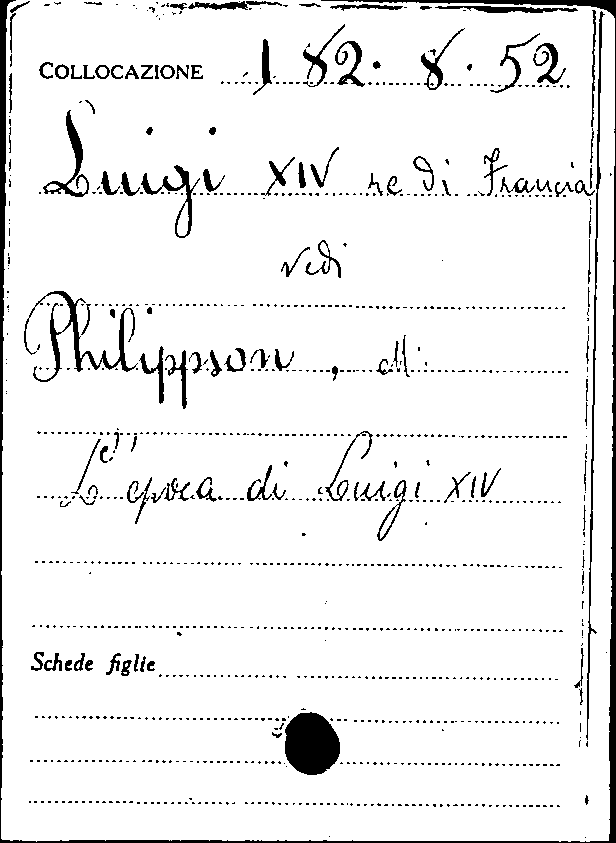 COLLOCAZIONE 182.8.52
Luigi XIV re di Francia
vedi
Philippson, M.
L'epoca di Luigi XIV
Schede figlie